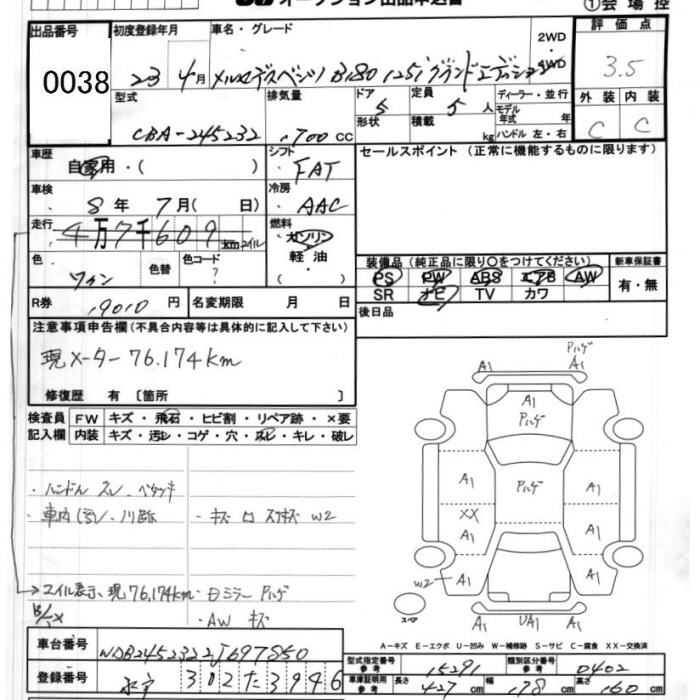 オークション出品申込書 ①会場控
出品番号 初度登録年月 車名・グレード 2WD・4WD 評価点
0038 23 4月 メルセデスベンツ B180 125!グランドエディション 3.5
型式 排気量 ドア 定員 ディーラー・並行 外装 内装
CBA-245232 1,700 CC 5 5人 モデル年式 年 C C
形状 積載 kg ハンドル 左・右
車歴 シフト セールスポイント (正常に機能するものに限ります)
自家用・( ) FAT
車検 冷房
8年 7月( 日) AAC
走行 燃料
4万7千609 km マイル ガソリン
色 色替 色コード 軽油 装備品 (純正品に限り○をつけてください) 新車保証書
ワイン ? ・( ) PS PW ABS エアB AW 有・無
SR ナビ TV カワ
R券 9010円 名変期限 月 日 後日品
注意事項申告欄(不具合内容等は具体的に記入して下さい)
現メーター76.174km
修復歴 有〔箇所 〕
検査員 FW キズ・飛石・ヒビ割・リペア跡・×要
記入欄 内装 キズ・汚レ・コゲ・穴・スレ・キレ・破レ
・ハンドル スレ ベタツキ
・車内 汚レ
・キズ ロ スリキズ W2
→マイル表示、現76,174km
・日ミラー ハルゲ
・AW キズ
ハルゲ
A1 A1
A1
ハルゲ
A1 ハルゲ A1
XX
A1 A1
W2 A1 A1
スペア
A1 UA1 A1
A-キズ E-エクボ U-凹み W-補修跡 S-サビ C-腐食 XX-交換済
車台番号 WDB2452322J697850
登録番号 302た3946
型式指定番号 参考 15291 類別区分番号 参考 0402
車庫証明用 参考 長さ 427cm 幅 178cm 高さ 160cm